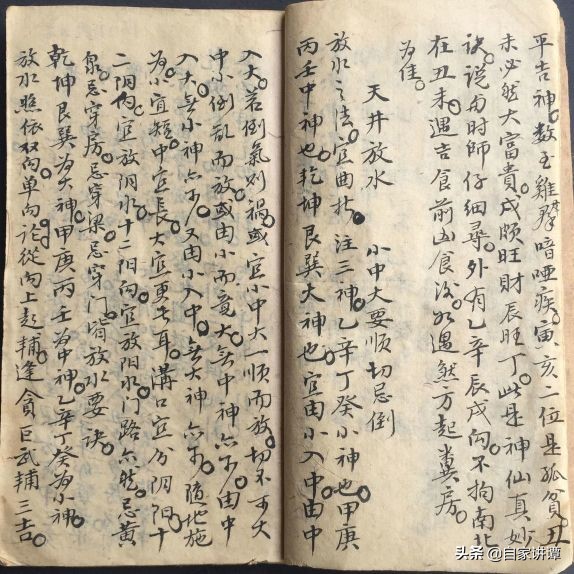 平吉神。数主雞瞽喑啞疾。寅亥二位是孤貧。丑
未必然大富貴。戌頗旺財辰旺丁。此是神仙真妙
诀。说与时師仔细尋。外有乙辛辰戌向。不拘南北
在丑未。遇吉食前凶食後。水遇煞方起糞房。
为佳。
天井放水 小中大要顺切忌倒
放水之法。宜曲折 注三神。乙辛丁癸小神也。甲庚
丙壬中神也。乾坤艮巽大神也 宜由小入中由中
入大。若倒氣则禍或宜小中大一顺而放。切不可大
中小倒乱而放或由小而竟大。無中神亦不。由中
入大無小神亦不。又由小入中。無大神 亦不。隨地施
为小宜短。中宜長。大宜更長耳。溝口宜分阴阳十
二阴向宜放阴水十二阳向宜放阳水门路亦然。忌黄
泉忌穿房忌穿梁忌穿门皆放水要 诀。
乾坤艮巽为大神。甲庚丙壬为中神乙辛丁癸为小神。
放水照依双向单向论從向上起輔逢貪巨武輔三吉。
头条 @自家讲谭